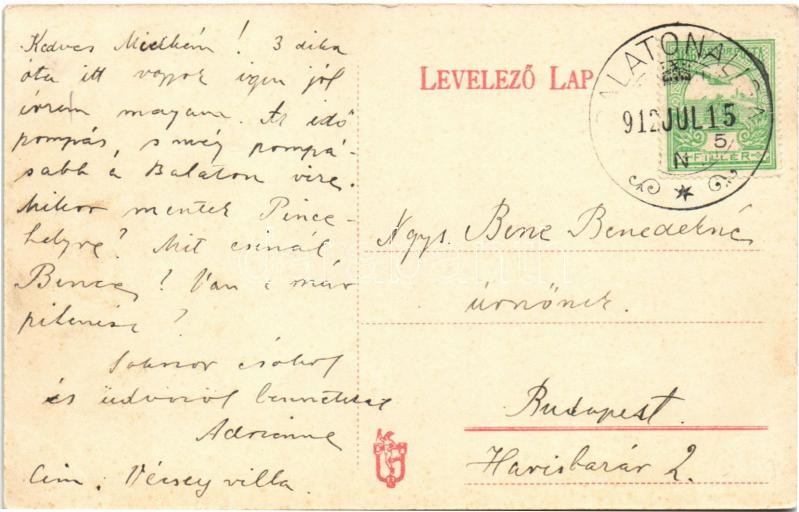 Kedves Miclkém! 3 dika
óta itt vagyok igen jól
érzem magam. Az idő
pompás, s még pompá-
sabb a Balaton vize.
Mikor mentek Pince-
helyre? Mit csinál
Bence! Van e már
pitenise?
Sokszor csókol
és üdvözöl benneteket
Adrienne
Cim. Vécsey villa.
LEVELEZŐ LAP
BALATONALIGA
912 JUL 15
N 5
FILLÉR
Ngys. Bene Benedekné
úrnőnek.
Budapest.
Harisbazár 2.